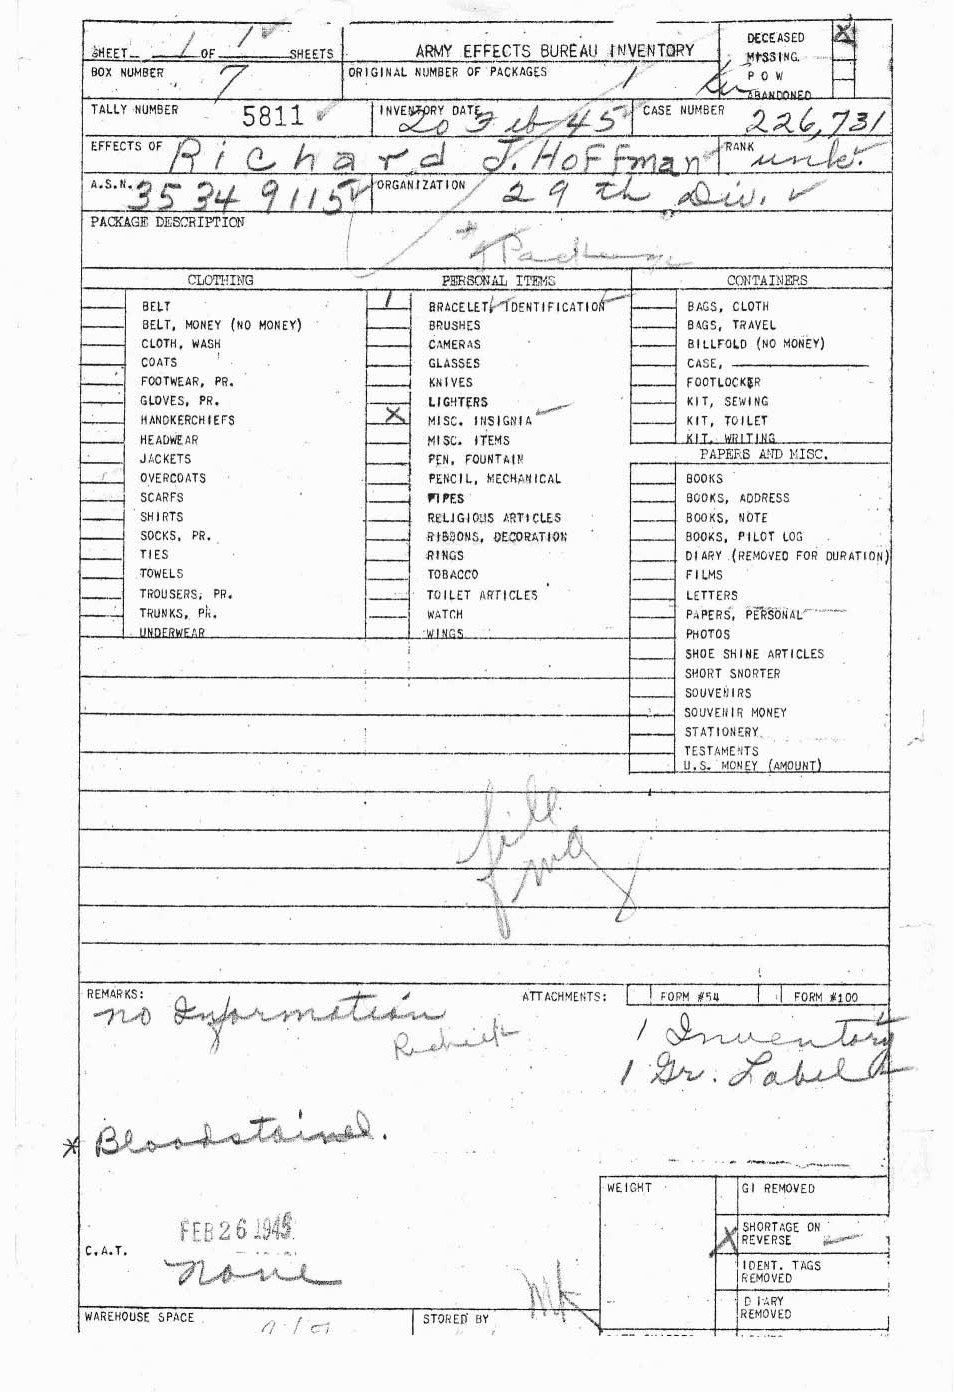 SHEET 1 OF 1 SHEETS
ARMY EFFECTS BUREAU INVENTORY
DECEASED X
MISSING
P O W
ABANDONED
BOX NUMBER 7
ORIGINAL NUMBER OF PACKAGES 1
TALLY NUMBER 5811
INVENTORY DATE 20 Feb 45
CASE NUMBER 226,731
EFFECTS OF Richard J. Hoffman
RANK unk.
A.S.N. 35349115
ORGANIZATION 29th Div.
PACKAGE DESCRIPTION
CLOTHING
BELT
BELT, MONEY (NO MONEY)
CLOTH, WASH
COATS
FOOTWEAR, PR.
GLOVES, PR.
HANDKERCHIEFS
HEADWEAR
JACKETS
OVERCOATS
SCARFS
SHIRTS
SOCKS, PR.
TIES
TOWELS
TROUSERS, PR.
TRUNKS, PR.
UNDERWEAR
PERSONAL ITEMS
1 BRACELET, IDENTIFICATION
BRUSHES
CAMERAS
GLASSES
KNIVES
LIGHTERS
X MISC. INSIGNIA
MISC. ITEMS
PEN, FOUNTAIN
PENCIL, MECHANICAL
PIPES
RELIGIOUS ARTICLES
RIBBONS, DECORATION
RINGS
TOBACCO
TOILET ARTICLES
WATCH
WINGS
CONTAINERS
BAGS, CLOTH
BAGS, TRAVEL
BILLFOLD (NO MONEY)
CASE,
FOOTLOCKER
KIT, SEWING
KIT, TOILET
KIT, WRITING
PAPERS AND MISC.
BOOKS
BOOKS, ADDRESS
BOOKS, NOTE
BOOKS, PILOT LOG
DIARY (REMOVED FOR DURATION)
FILMS
LETTERS
PAPERS, PERSONAL
PHOTOS
SHOE SHINE ARTICLES
SHORT SNORTER
SOUVENIRS
SOUVENIR MONEY
STATIONERY
TESTAMENTS
U.S. MONEY (AMOUNT)
REMARKS:
no Information
ATTACHMENTS: FORM #54 FORM #100
1 Inventory
1 Gr. Label
* Bloodstained.
FEB 26 1945
C.A.T.
none
WEIGHT
GI REMOVED
X SHORTAGE ON REVERSE
IDENT. TAGS REMOVED
DIARY REMOVED
WAREHOUSE SPACE
STORED BY